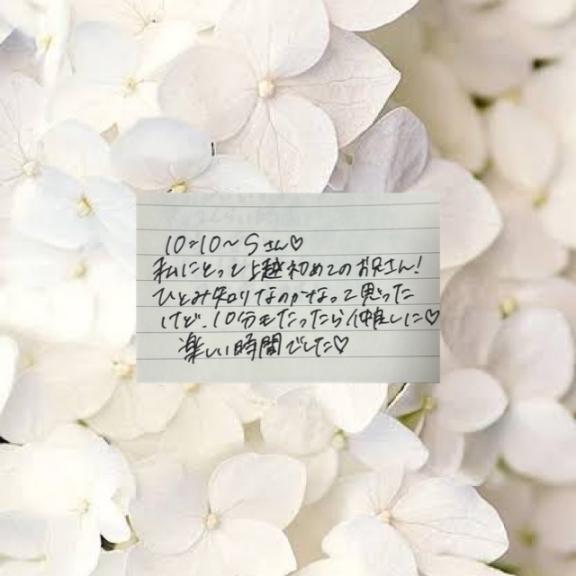 10:10～Sさん♡
私にとって上越初めてのお兄さん!
ひとみ知りなのかなって思った
けど、10分もたったら仲良しに♡
楽しい時間でした♡